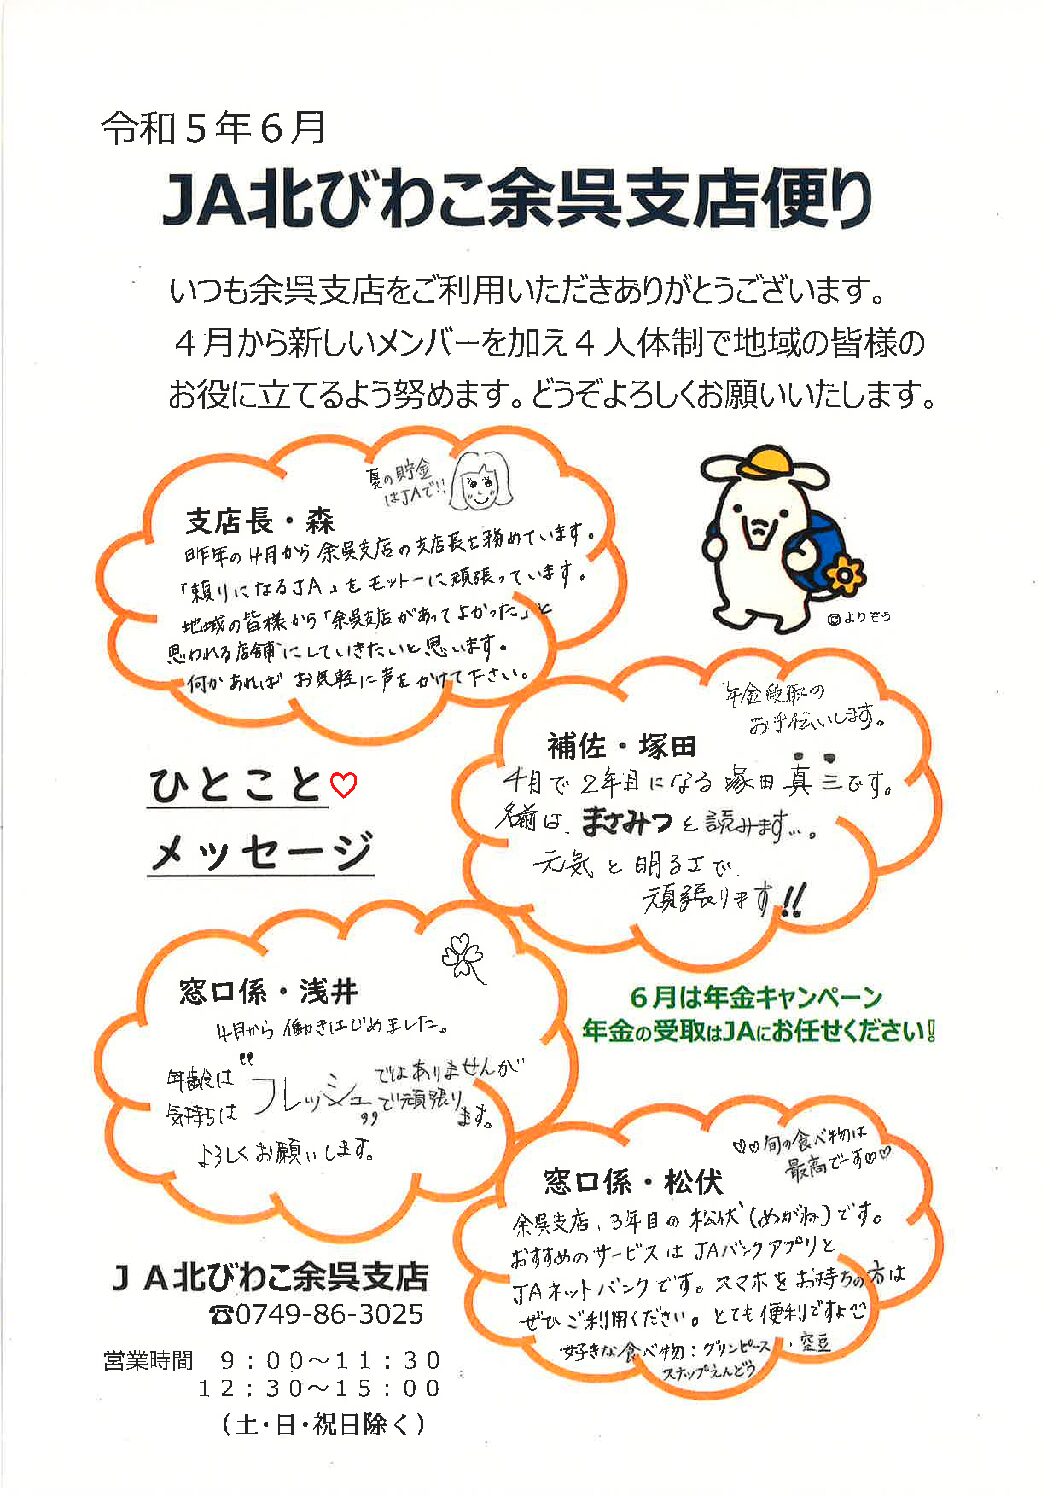 令和５年６月
JA北びわこ余呉支店便り
いつも余呉支店をご利用いただきありがとうございます。
４月から新しいメンバーを加え４人体制で地域の皆様の
お役に立てるよう努めます。どうぞよろしくお願いいたします。
夏の貯金
はJAで!!
支店長・森
昨年の4月から余呉支店の支店長を務めています。
「頼りになるJA」をモットーに頑張っています。
地域の皆様から「余呉支店があってよかった」と
思われる店舗にしていきたいと思います。
何かあれば お気軽に声をかけて下さい。
©よりぞう
年金受取の
お手伝いします。
補佐・塚田
4月で2年目になる塚田真三です。
名前は、まさみつと読みます…。
元気と明るエで
頑張ります!!
ひとこと♡
メッセージ
窓口係・浅井
4月から働きはじめました。
年齢は"フレッシュ"ではありませんが
気持ちは で頑張ります。
よろしくお願いします。
６月は年金キャンペーン
年金の受取はJAにお任せください!
♡♡旬の食べ物は
最高でーす♡♡
窓口係・松伏
余呉支店、3年目の松伏(めがね)です。
おすすめのサービスはJAバンクアプリと
JAネットバンクです。スマホをお持ちの方は
ぜひご利用ください。とても便利ですよ
好きな食べ物：グリンピース、空豆
スナップえんどう
ＪＡ北びわこ余呉支店
☎0749-86-3025
営業時間　９：００～１１：３０
１２：３０～１５：００
（土・日・祝日除く）